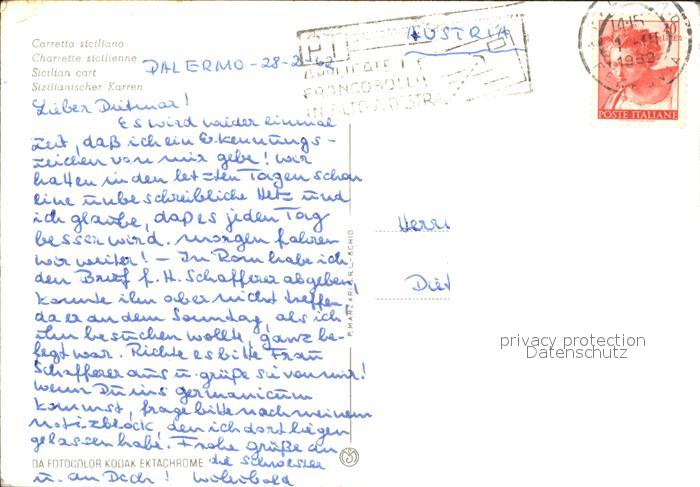 Carretto siciliano
Charrette sicilienne
Sicilian cart
Sizilianischer Karren
PALERMO-28-2-62
AUSTRIA
P.T.
APPLICATE I
FRANCOBOLLI
IN ALTO A DESTRA
14-15
1962
30
LIRE
POSTE ITALIANE
Lieber Dietmar!
Es wird wieder einmal
Zeit, daß ich ein Erkennungs-
zeichen von mir gebe! Wir
hatten in den letzten Tagen schon
eine unbeschreibliche Hetz und
ich glaube, daß es jeden Tag
besser wird. Morgen fahren
wir weiter! – In Rom habe ich
den Brief f. H. Schafferer abgeben,
konnte ihn aber nicht treffen,
da er an dem Sonntag, als ich
ihn besuchen wollte, ganz be-
legt war. Richte es bitte Frau
Schafferer aus u. grüße sie von mir!
Wenn Du ins Germanicum
kommst, frage bitte nach meinem
Notizblock, den ich dort liegen
gelassen habe. Frohe Grüße an
die Schwester
u. an Dich!
Herrn
Diet
P. MARZARI S.R.L.-SCHIO
DA FOTOCOLOR KODAK EKTACHROME
privacy protection
Datenschutz